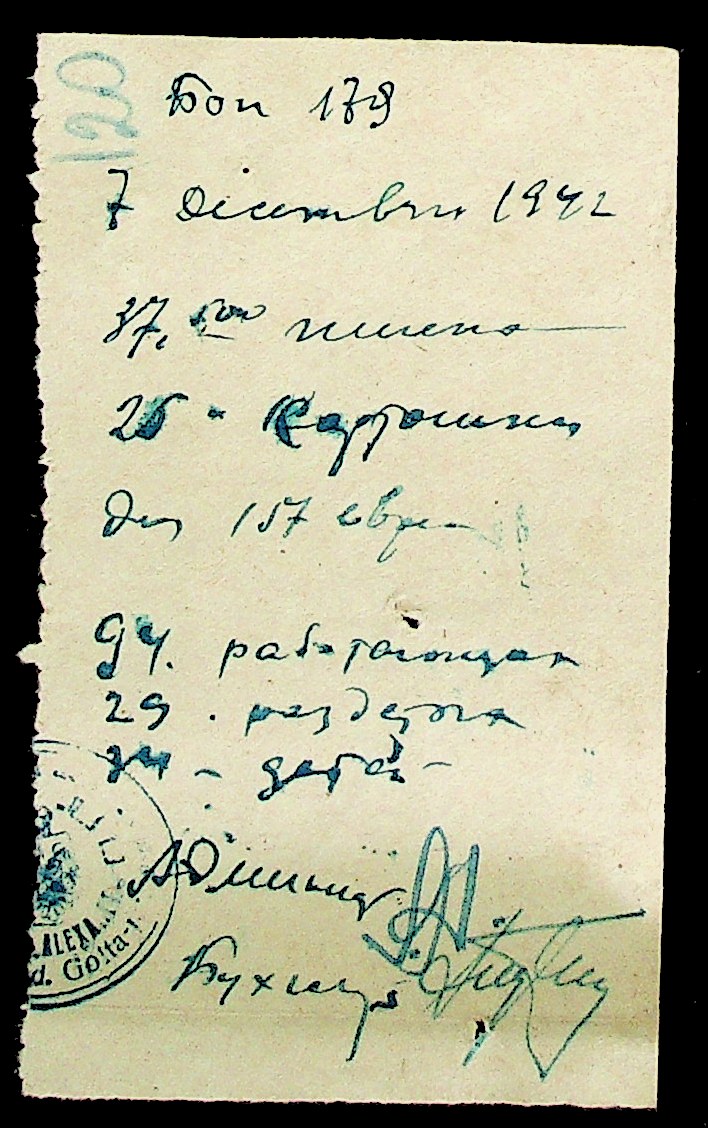 120
Бон 179
7 дiсемвrи 1942
37,500 пшена
25 - Картошки
для 157 евре
94. работающих
29. раздетых
34 - детей -
Админист
Бухгалтер
ALEXA
d. Golta-